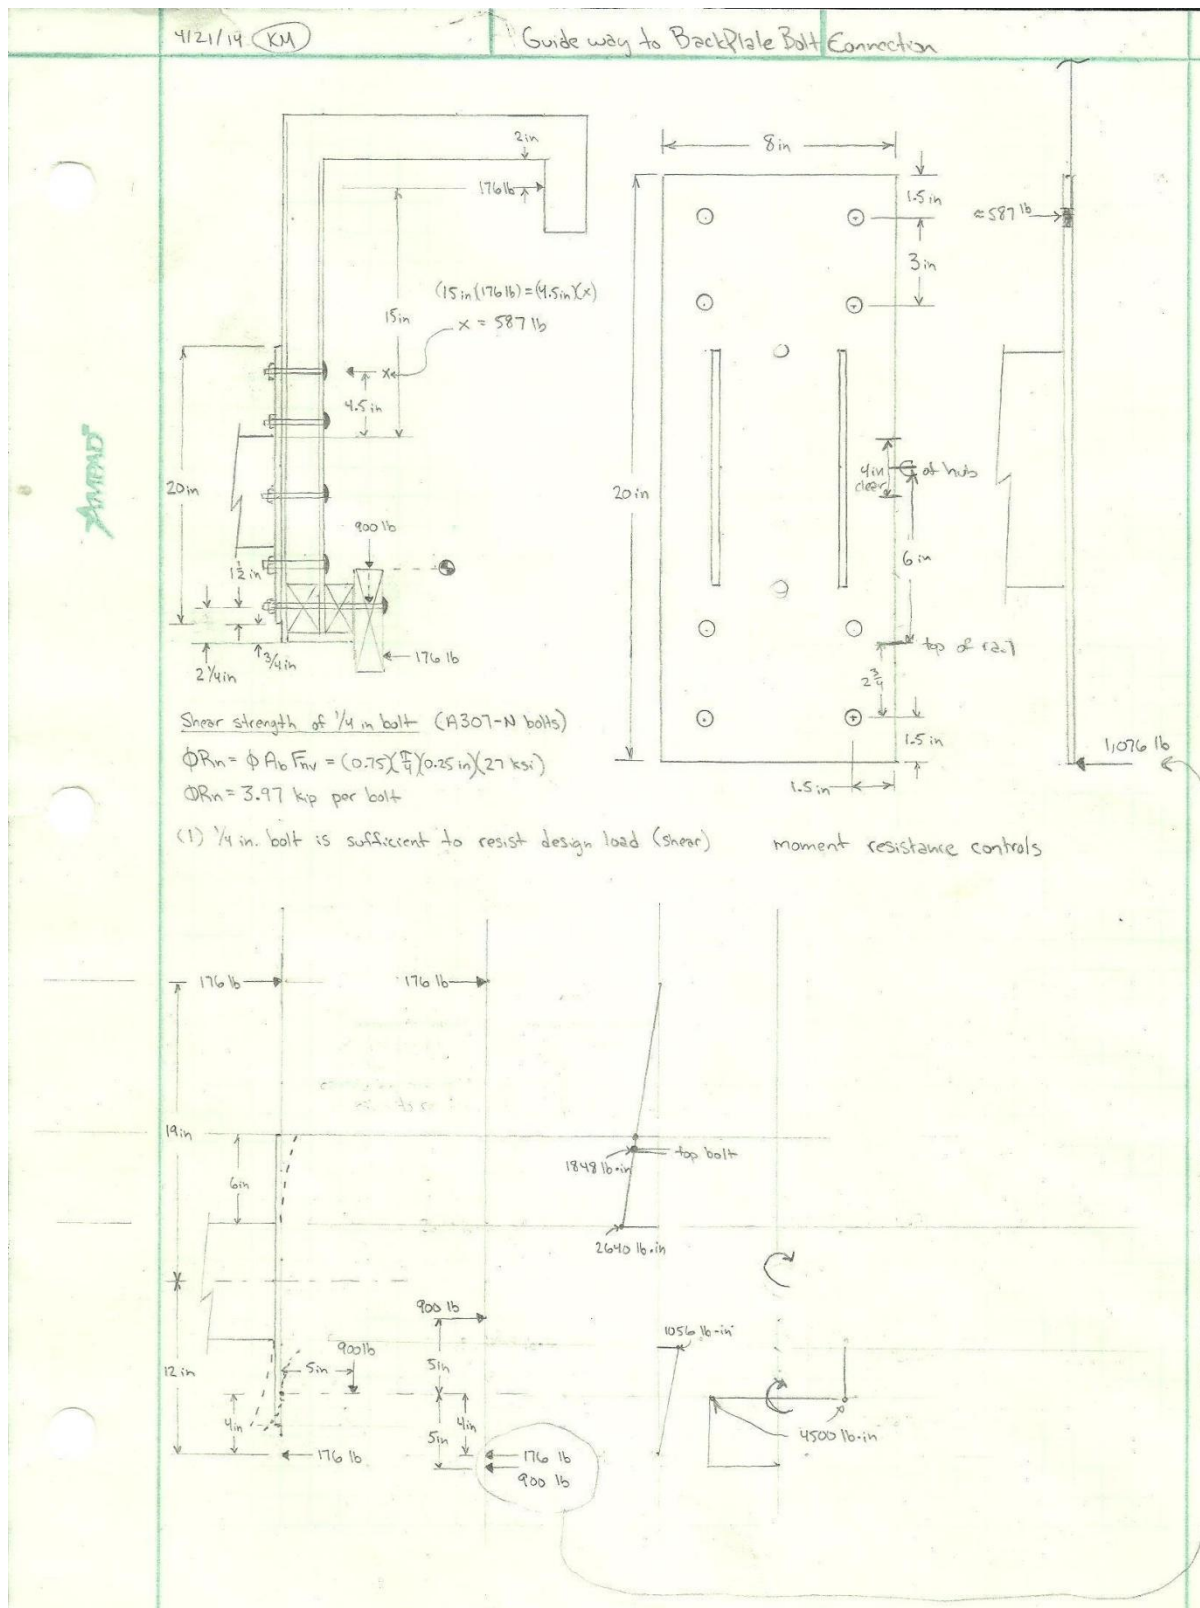 4/21/14 KM
Guide way to BackPlate Bolt Connection
2in
176 lb
(15 in)(176 lb) = (4.5in)(x)
x = 587 lb
15in
x
4.5 in
20in
900 lb
1 1/2 in
3/4 in
2 1/4 in
176 lb
8in
1.5 in
3in
20in
4in
clear
℄ of hub
6 in
top of rail
2 3/4
1.5 in
1.5 in
≈587 lb
1,076 lb
AMPAD
Shear strength of 1/4 in bolt (A307-N bolts)
ΦRn = Φ Ab Fnv = (0.75)(π/4)(0.25 in)(27 ksi)
ΦRn = 3.97 kip per bolt
(1) 1/4 in. bolt is sufficient to resist design load (shear)
moment resistance controls
176 lb
176 lb
19in
6in
1848 lb·in
top bolt
2640 lb·in
900 lb
12 in
5in
900 lb
5in
4in
4in
5in
176 lb
176 lb
900 lb
1056 lb-in
4500 lb·in